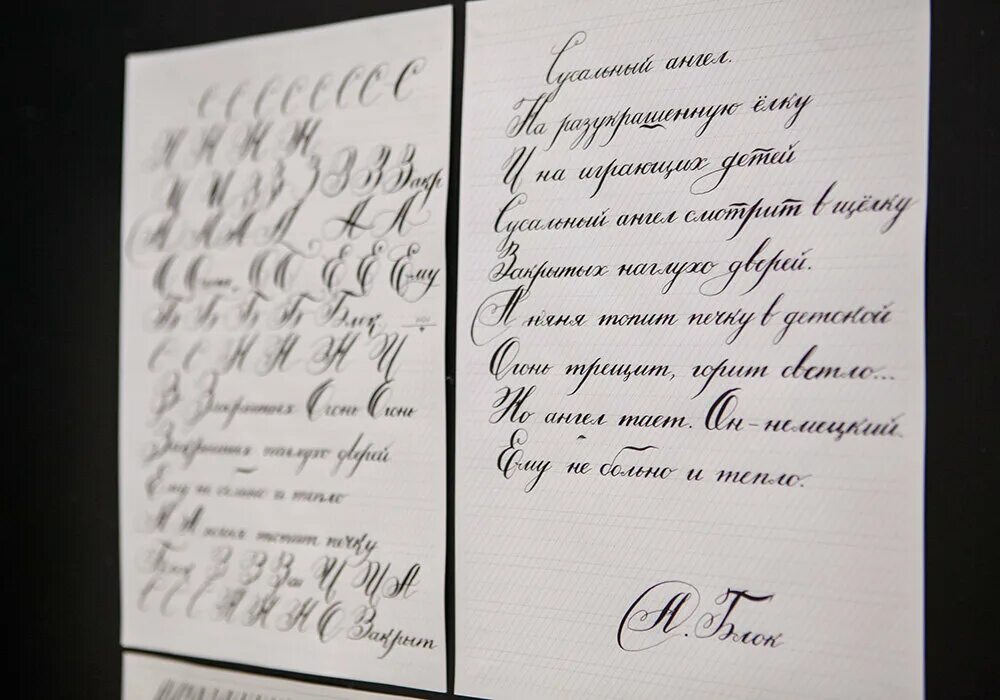 С С С С С С С С
Н Н Н Н
И И З З З З З З Закр
А А А А А А
О Огонь О О Е Е Ему
Б Б Б Б Блок
С С Н Н Н И
З Закрытых Огонь Огонь
Закрытых наглухо дверей
Ему не больно и тепло
А А няня топит печку
Блок З З За И И А
С С С А Н Н О Закрыт
Сусальный ангел.
На разукрашенную ёлку
И на играющих детей
Сусальный ангел смотрит в щёлку
Закрытых наглухо дверей.
А няня топит печку в детской
Огонь трещит, горит светло...
Но ангел тает. Он-немецкий.
Ему не больно и тепло.
А. Блок